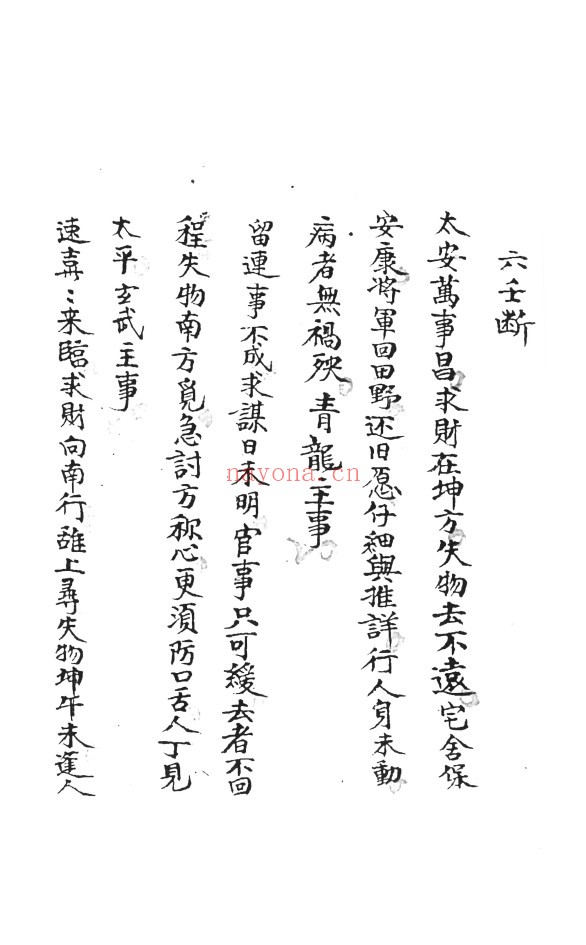 六壬断
太安萬事昌求財在坤方失物去不遠宅舍保
安康将軍回田野还旧愿仔細與推詳行人身未動
病者無禍殃青龍主事
留連事不成求謀日未明官事只可緩去者不回
程失物南方覓急討方称心更須防口舌人丁見
太平玄武主事
速喜〻来臨求財向南行 上尋失物坤午未逢人
nayona.cn